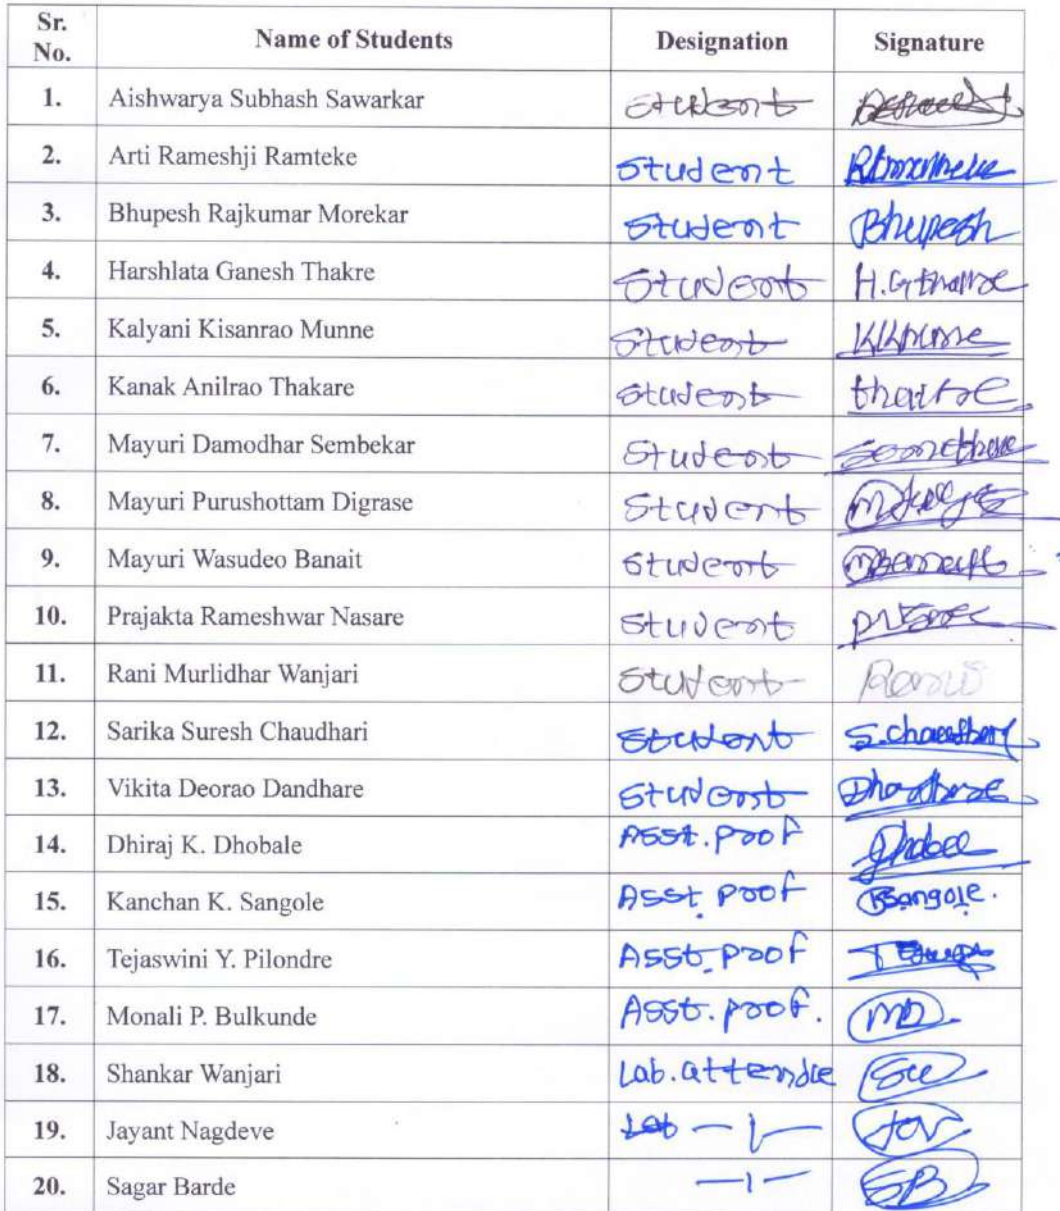 Sr. No. Name of Students Designation Signature
1. Aishwarya Subhash Sawarkar Student
2. Arti Rameshji Ramteke Student
3. Bhupesh Rajkumar Morekar Student Bhupesh
4. Harshlata Ganesh Thakre Student
5. Kalyani Kisanrao Munne Student
6. Kanak Anilrao Thakare Student
7. Mayuri Damodhar Sembekar Student
8. Mayuri Purushottam Digrase Student
9. Mayuri Wasudeo Banait Student
10. Prajakta Rameshwar Nasare Student
11. Rani Murlidhar Wanjari Student
12. Sarika Suresh Chaudhari Student
13. Vikita Deorao Dandhare Student
14. Dhiraj K. Dhobale Asst. Prof
15. Kanchan K. Sangole Asst. Prof
16. Tejaswini Y. Pilondre Asst. Prof
17. Monali P. Bulkunde Asst. Prof.
18. Shankar Wanjari Lab. attende
19. Jayant Nagdeve —ı—
20. Sagar Barde —ı— SB